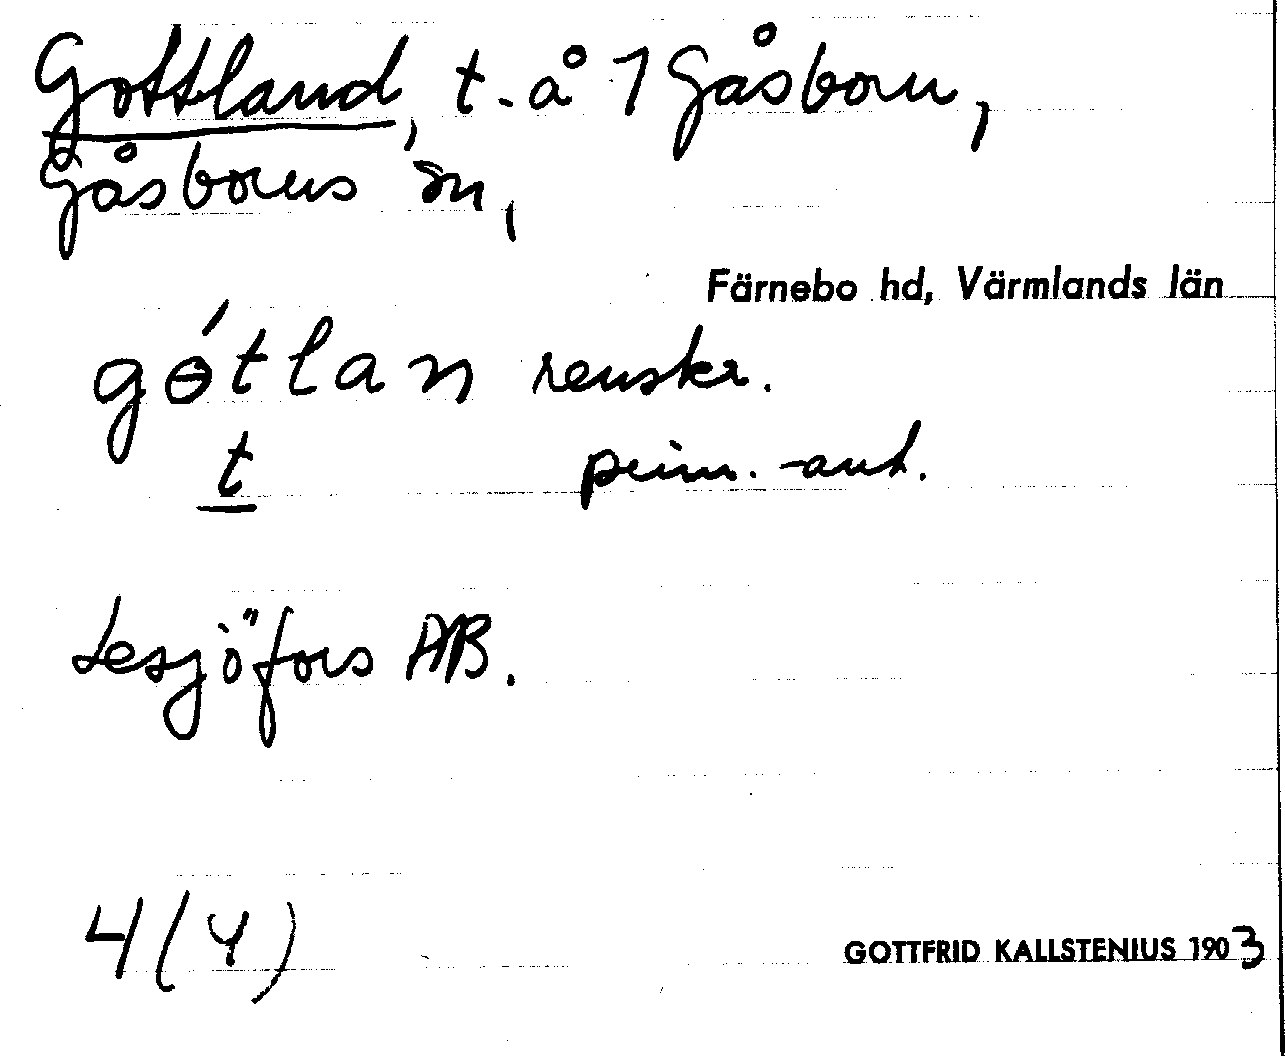 Gottland, t. å 1 Gåsborn,
Gåsborns sn,
Färnebo hd, Värmlands län
gɵ́tlan renskr.
t prim. -ant.
Lesjöfors AB.
4 (4)
GOTTFRID KALLSTENIUS 1903